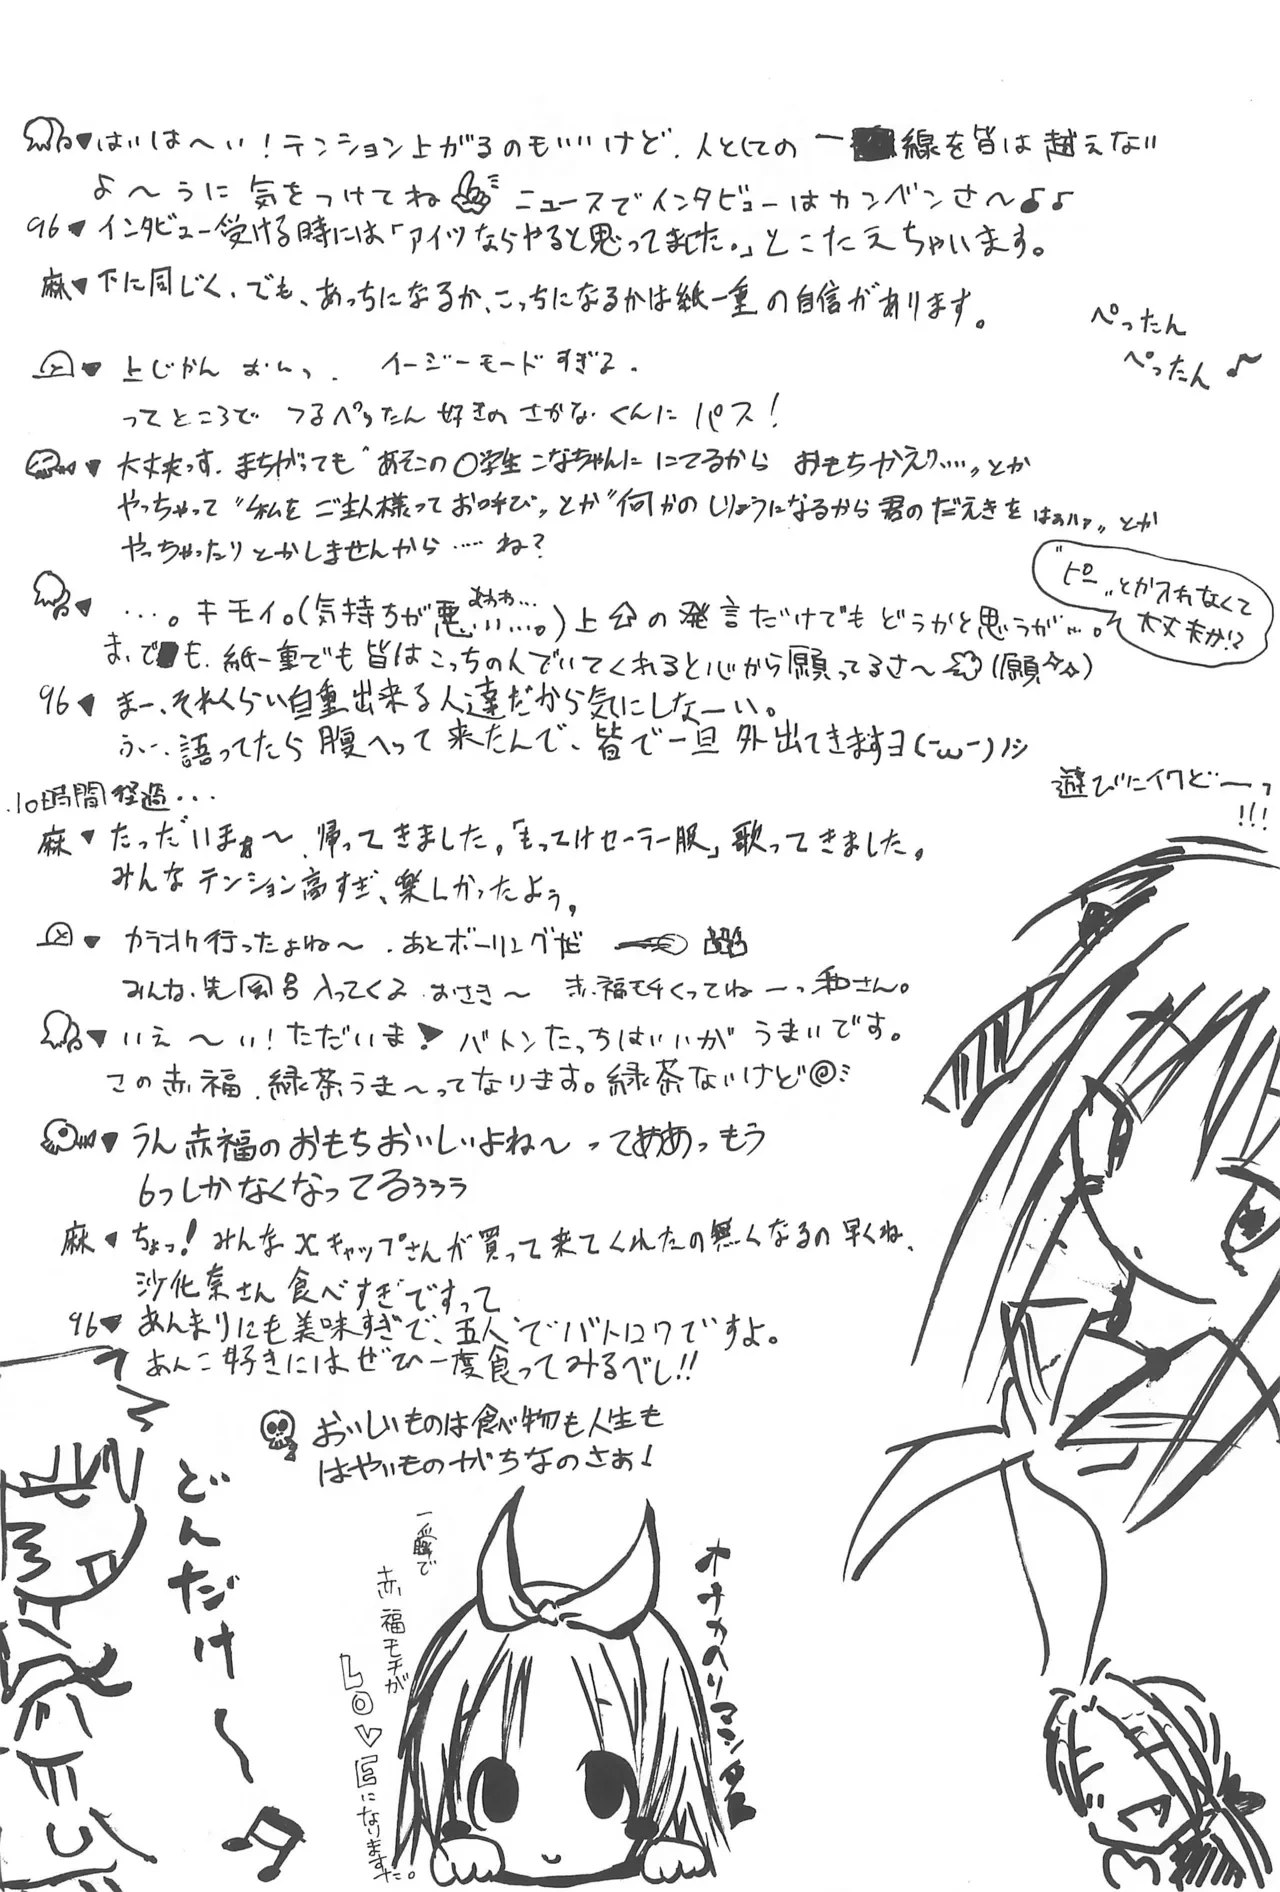 はいは〜い!テンション上がるのもいいけど、人としての一線を皆は越えない
よ〜うに気をつけてね ニュースでインタビューはカンベンさ〜♪♪
96▼インタビュー受ける時には「アイツならやると思ってました。」とこたえちゃいます。
麻▼下に同じく、でも、あっちになるか、こっちになるかは紙一重の自信があります。
ぺったん
ぺったん♪
▼上じかん おいっ. イージーモードすぎる.
ってところで つるぺったん好きのさかなくんにパス!
▼大丈夫っす.まちがっても"あそこの○学生こなちゃんににてるから おもちかえり……"とか
やっちゃって"私をご主人様ってお呼び"とか"何かのじょうになるから君のだえきをはぁハァ"とか
やっちゃったりとかしませんから……ね?
"ピー"とか入れなくて
大丈夫か!?
▼…。キモイ。(気持ちが悪い…。)上公の発言だけでもどうかと思うが…。
ま、でも、紙一重でも皆はこっちの人でいてくれると心から願ってるさ〜(願)
96▼まー、それくらい自重出来る人達だから気にしなーい。
ふー、語ってたら腹へって来たんで、皆で一旦外出てきますヨ(-ω-)ノシ
遊びにイクどーっ
!!!
.10時間経過...
麻▼たっだいまぁ〜、帰ってきました。「もってけセーラー服」歌ってきました。
みんなテンション高すぎ、楽しかったよぅ。
▼カラオケ行ったよね〜.あとボーリングだ
みんな、先風呂入ってくる.おさき〜 赤福モチくってねーっ和さん。
▼いえ〜い!ただいま! バトンたっちはいいが うまいです。
この赤福、緑茶うま〜ってなります。緑茶ないけど@
▼うん赤福のおもちおいしいよね〜ってああっもう
6つしかなくなってるぅぅぅ
麻▼ちょっ!みんなXキャップさんが買って来てくれたの無くなるの早くね、
沙化奈さん食べすぎですって
96▼あんまりにも美味すぎで、五人でバトロワですよ。
あんこ好きにはぜひ一度食ってみるべし!!
おいしいものは食べ物も人生も
はやいものがちなのさぁ♩
どんだけ〜♫
一瞬で
赤福モチが
LO♡Eになりますた。
オナカヘリマシタ